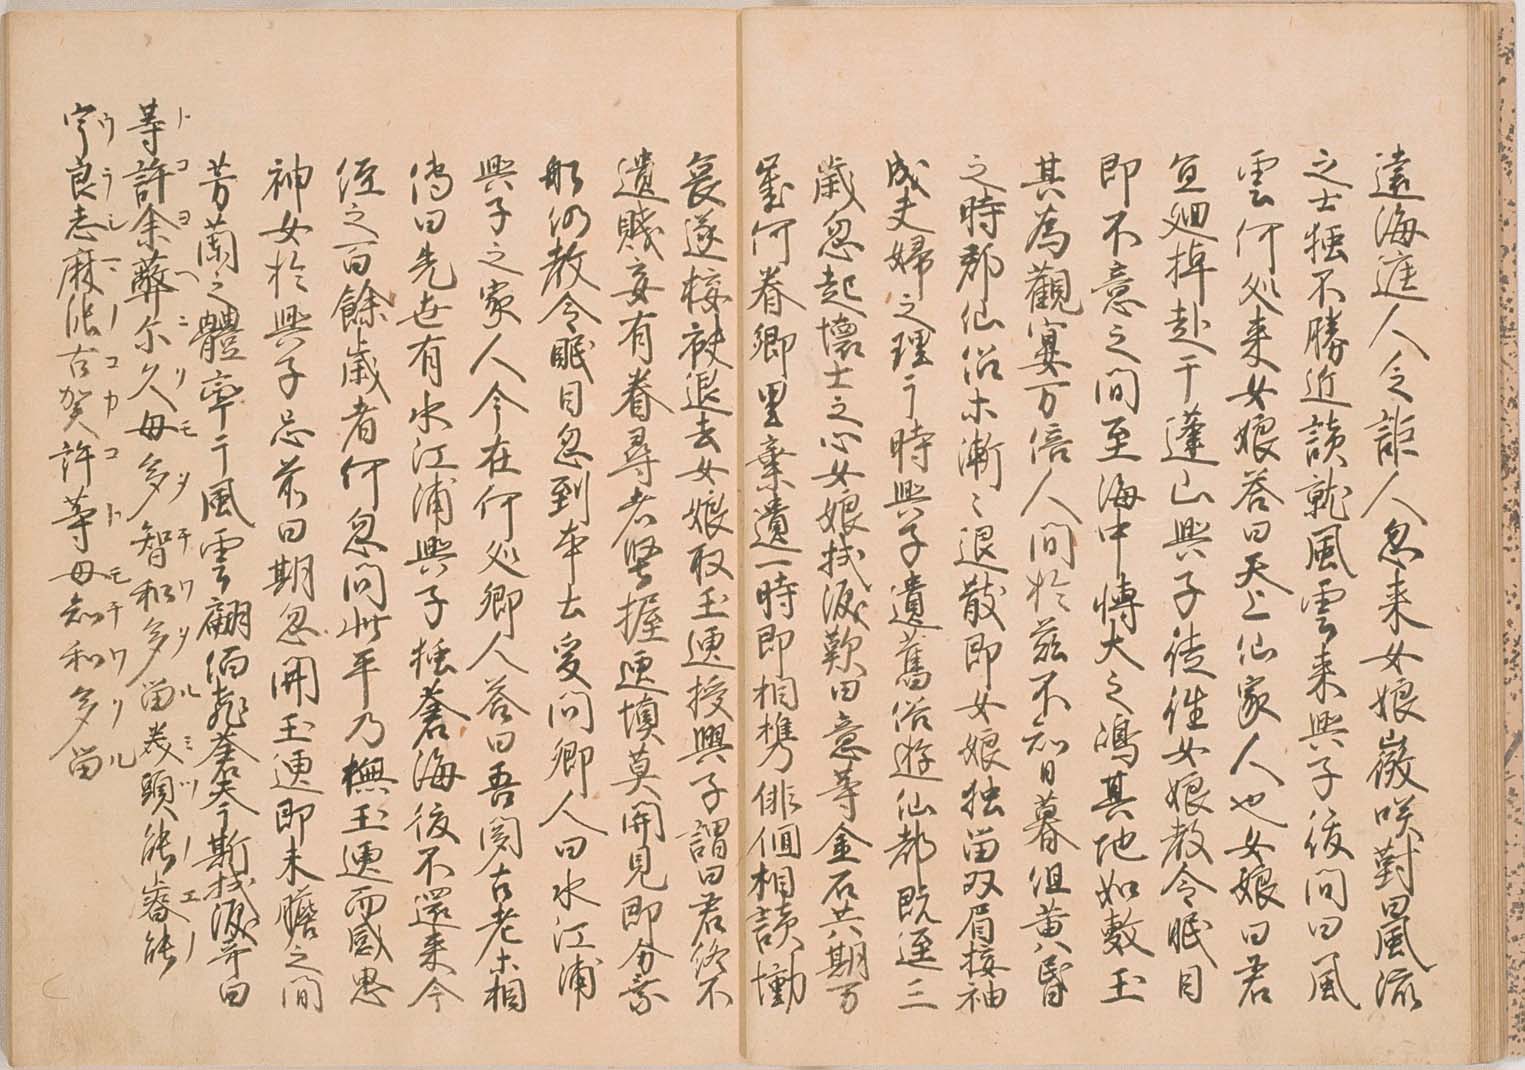 遠海遥人今詎人忽来女娘微咲對曰風流
之士独不勝近談就風雲来與子後問曰風
雲何処来女娘荅曰天上仙家人也女娘曰君
宜廻棹赴于蓬山與子従往女娘教令眠目
即不意之間至海中博大之嶋其地如敷玉
其為觀宴万倍人間於茲不知日暮但黄昏
之時郡仙侶ホ漸〻退散即女娘独留双眉接袖
成夫婦之理于時與子遺舊俗遊仙都既逕三
歳忽起懐土之心女娘拭涙歎曰意等金石共期万
歳何眷郷里棄遺一時即相携俳佪相談慟
哀遂接袂退去女娘取玉匣授與子謂曰君終不
遺賤妾有眷尋者堅握匣慎莫開見即分乗
舩仍教令眠目忽到本土爰問郷人曰水江浦
與子之家人今在何処郷人荅曰吾聞古老ホ相
傳曰先世有水江浦與子独蒼海復不還来今
逕之百餘歳者何忽問此乎乃撫玉匣而感思
神女於與子忘前日期忽開玉匣即未瞻之間
芳蘭之體率于風雲翩佰飛蒼天于斯拭涙哥曰
等許余蔽尓久母多智和多留美頭能睿能
トコヨヘニクモタチワタルミツノエノ
宇良志麻能古賀許等母知和多留
ウラシマノコカコトモチワタル